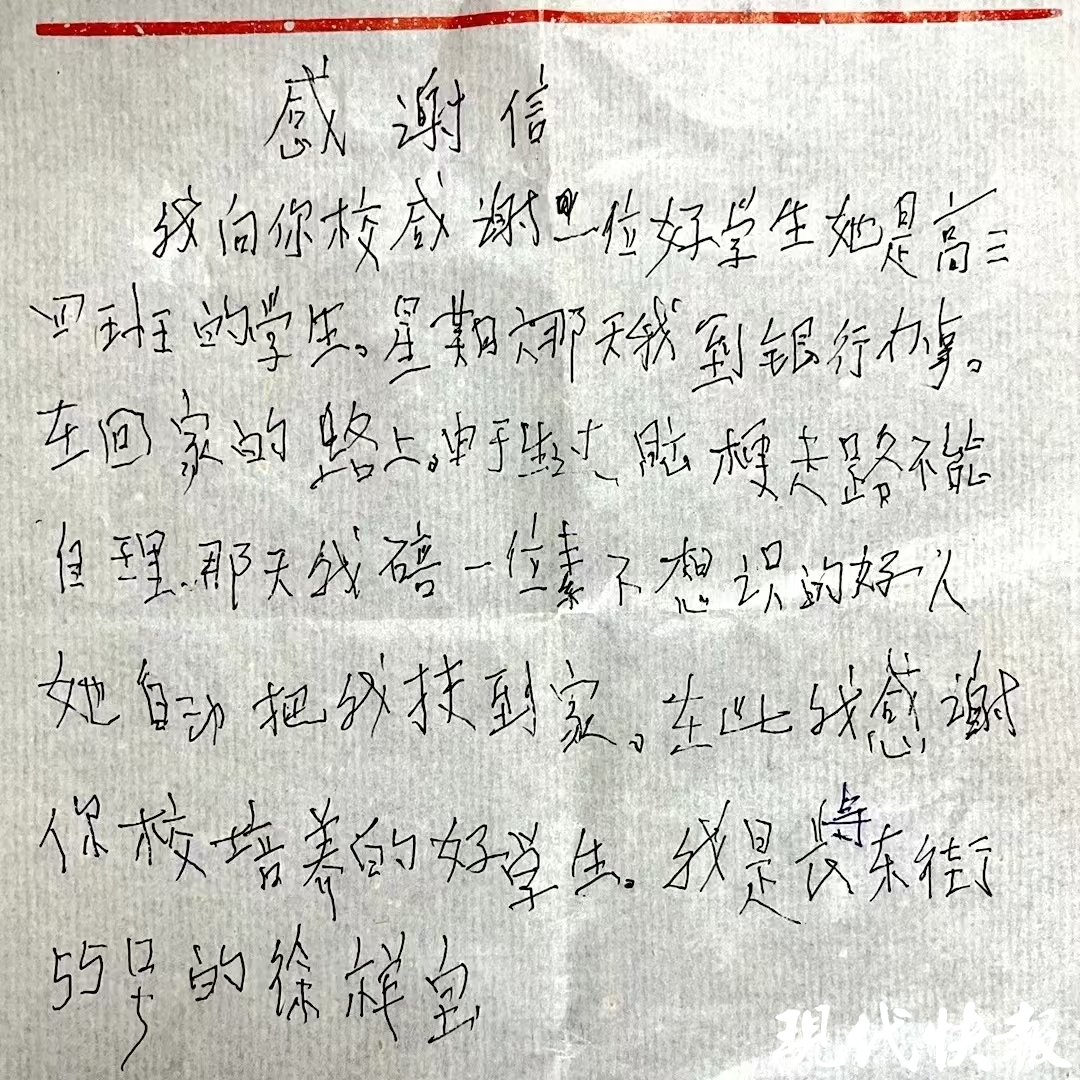 感谢信
我向你校感谢一位好学生她是高三
四班的学生。星期六那天我到银行办事。
在回家的路上。由于生过脑梗走路不能
自理.那天我碚一位素不想识的好人
她自动把我扶到家。在此我感谢
你校培养的好学生。我是 东街
55号的徐祥宝
现代快报